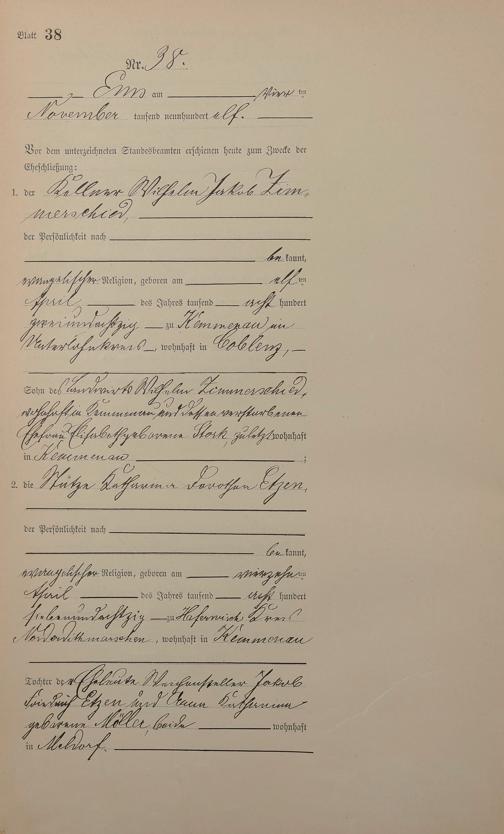 Blatt 38
Nr. 38.
Ems am vier ten
November tausend neunhundert elf.
Vor dem unterzeichneten Standesbeamten erschienen heute zum Zwecke der
Eheschließung:
1. der Kellner Wilhelm Jakob Zim-
merschied,
der Persönlichkeit nach
be kannt,
evangelischer Religion, geboren am elf ten
April des Jahres tausend acht hundert
zweiundachtzig zu Kemmenau im
Unterlahnkreis, wohnhaft in Coblenz,
Sohn des Landwirts Wilhelm Zimmerschied,
wohnhaft in Kemmenau, und dessen verstorbenen
Ehefrau Elisabeth geborene Stork, zuletzt wohnhaft
in Kemmenau ;
2. die Stütze Katharina Dorothea Etzen,
der Persönlichkeit nach
be kannt,
evangelischer Religion, geboren am vierzehn ten
April des Jahres tausend acht hundert
siebenundachtzig zu Kreis
Norderdithmarschen, wohnhaft in Kemmenau
Tochter der Eheleute Weichensteller Jakob
Friedrich Etzen und Anna Katharina
geborene Möller, beide wohnhaft
in Meldorf.